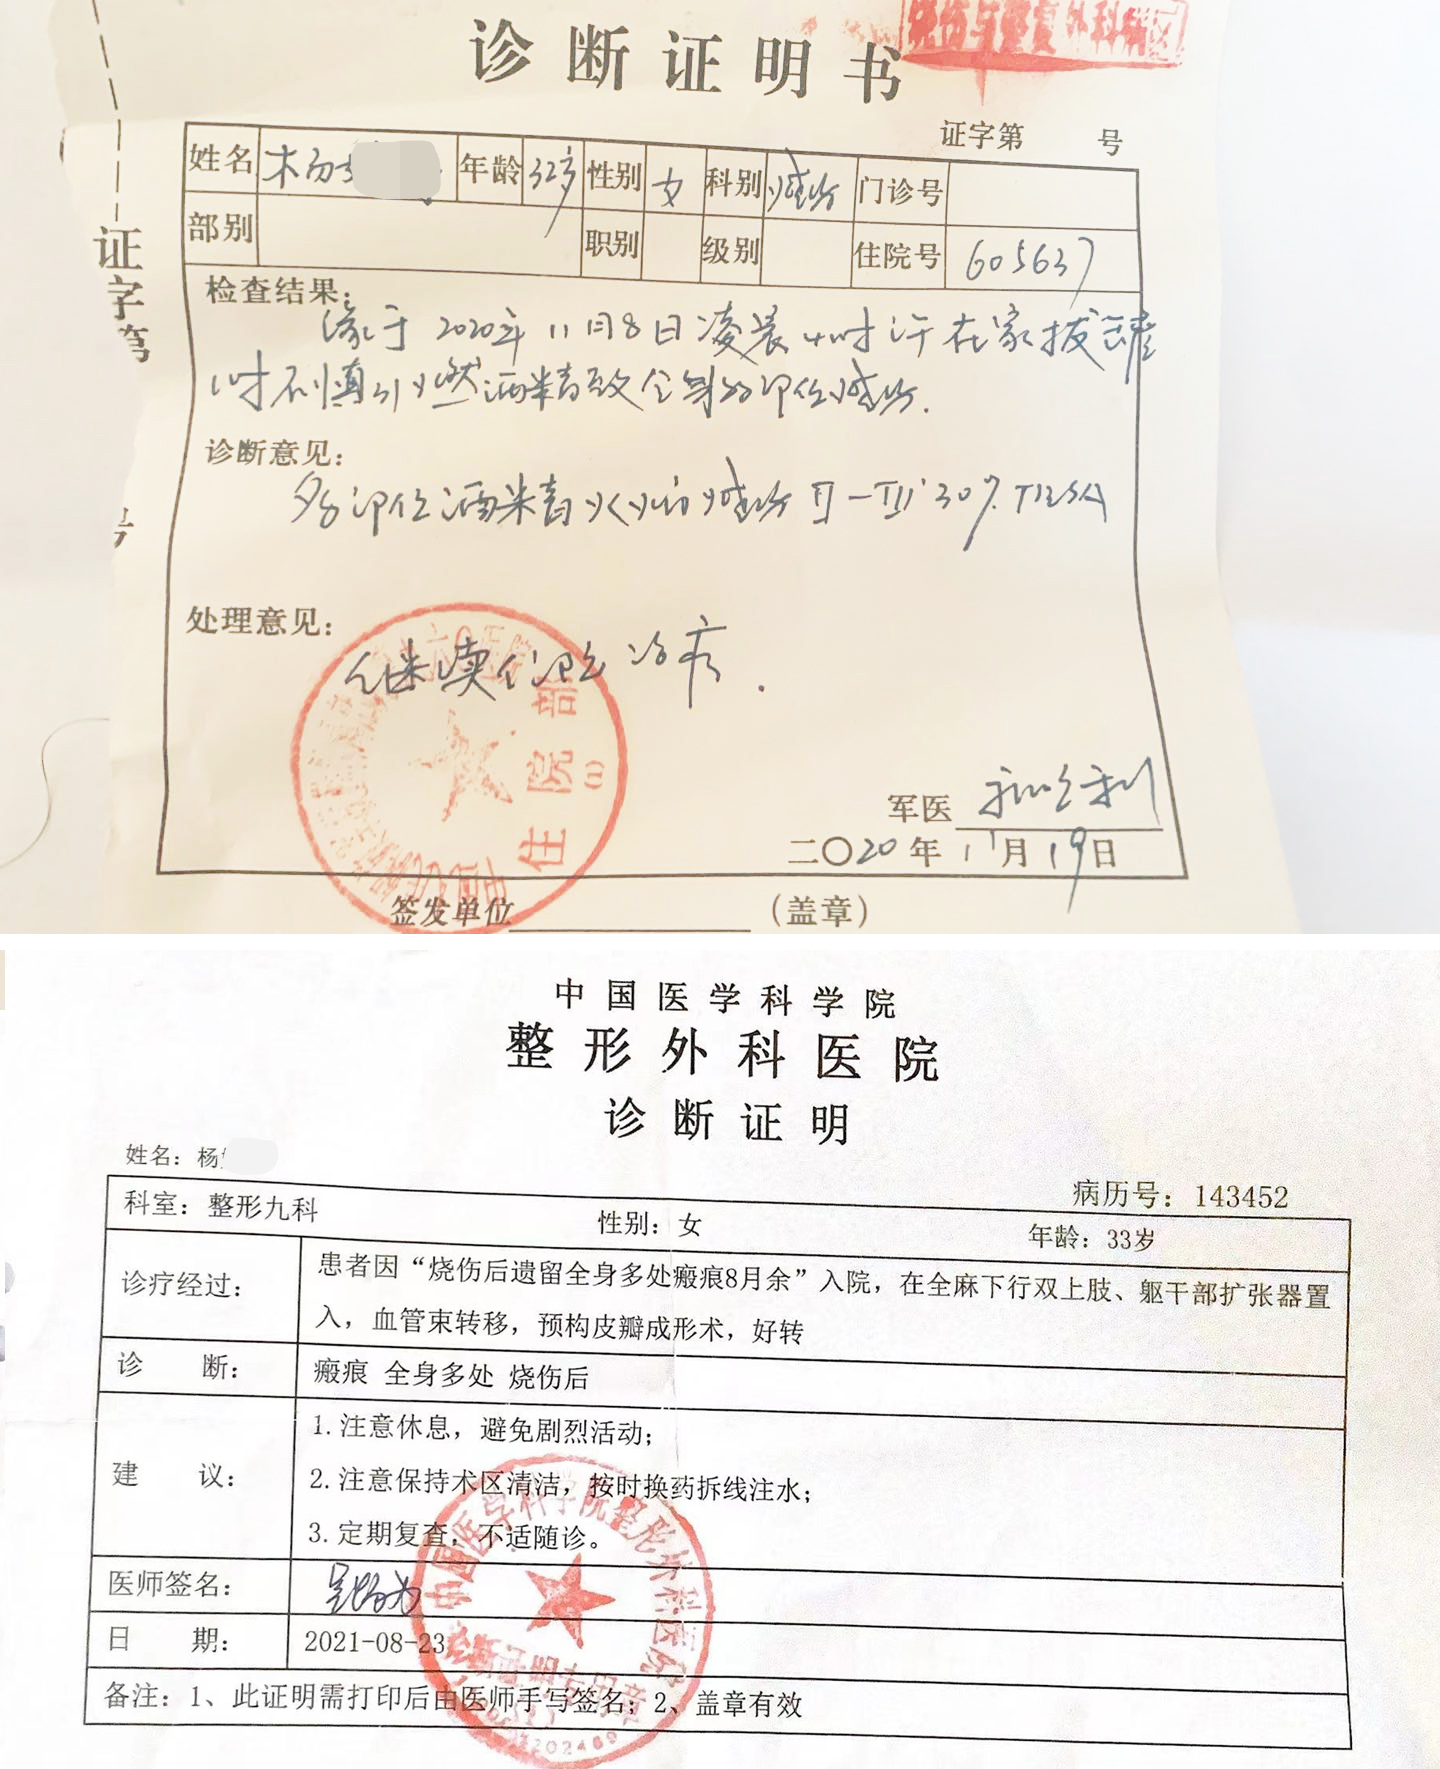 烧伤与整复外科病区
诊断证明书
证字第 号
姓名 杨 年龄 32岁 性别 女 科别 烧伤 门诊号
部别 职别 级别 住院号 605637
证字第
号
检查结果:
缘于2020年11月8日凌晨4时许在家拔罐
时不慎引燃酒精致全身多部位烧伤.
诊断意见:
多部位酒精火焰烧伤II-III°30%TBSA
处理意见:
继续住院治疗.
住院部
(1)
军医
二〇20年11月19日
签发单位 (盖章)
中国医学科学院
整形外科医院
诊断证明
姓名：杨
病历号：143452
科室：整形九科 性别：女 年龄：33岁
诊疗经过： 患者因“烧伤后遗留全身多处瘢痕8月余”入院，在全麻下行双上肢、躯干部扩张器置
入，血管束转移，预构皮瓣成形术，好转
诊 断： 瘢痕 全身多处 烧伤后
建 议： 1.注意休息，避免剧烈活动；
2.注意保持术区清洁，按时换药拆线注水；
3.定期复查，不适随诊。
医师签名：
日 期： 2021-08-23
备注：1、此证明需打印后由医师手写签名；2、盖章有效
中国医学科学院整形外科医院
诊断证明专用章